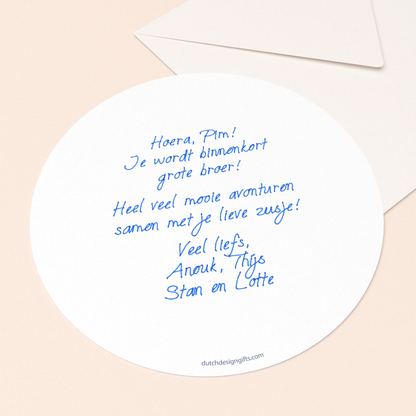 Hoera, Pim!
Je wordt binnenkort
grote broer!
Heel veel mooie avonturen
samen met je lieve zusje!
Veel liefs,
Anouk, Thijs
Stan en Lotte
dutchdesigngifts.com